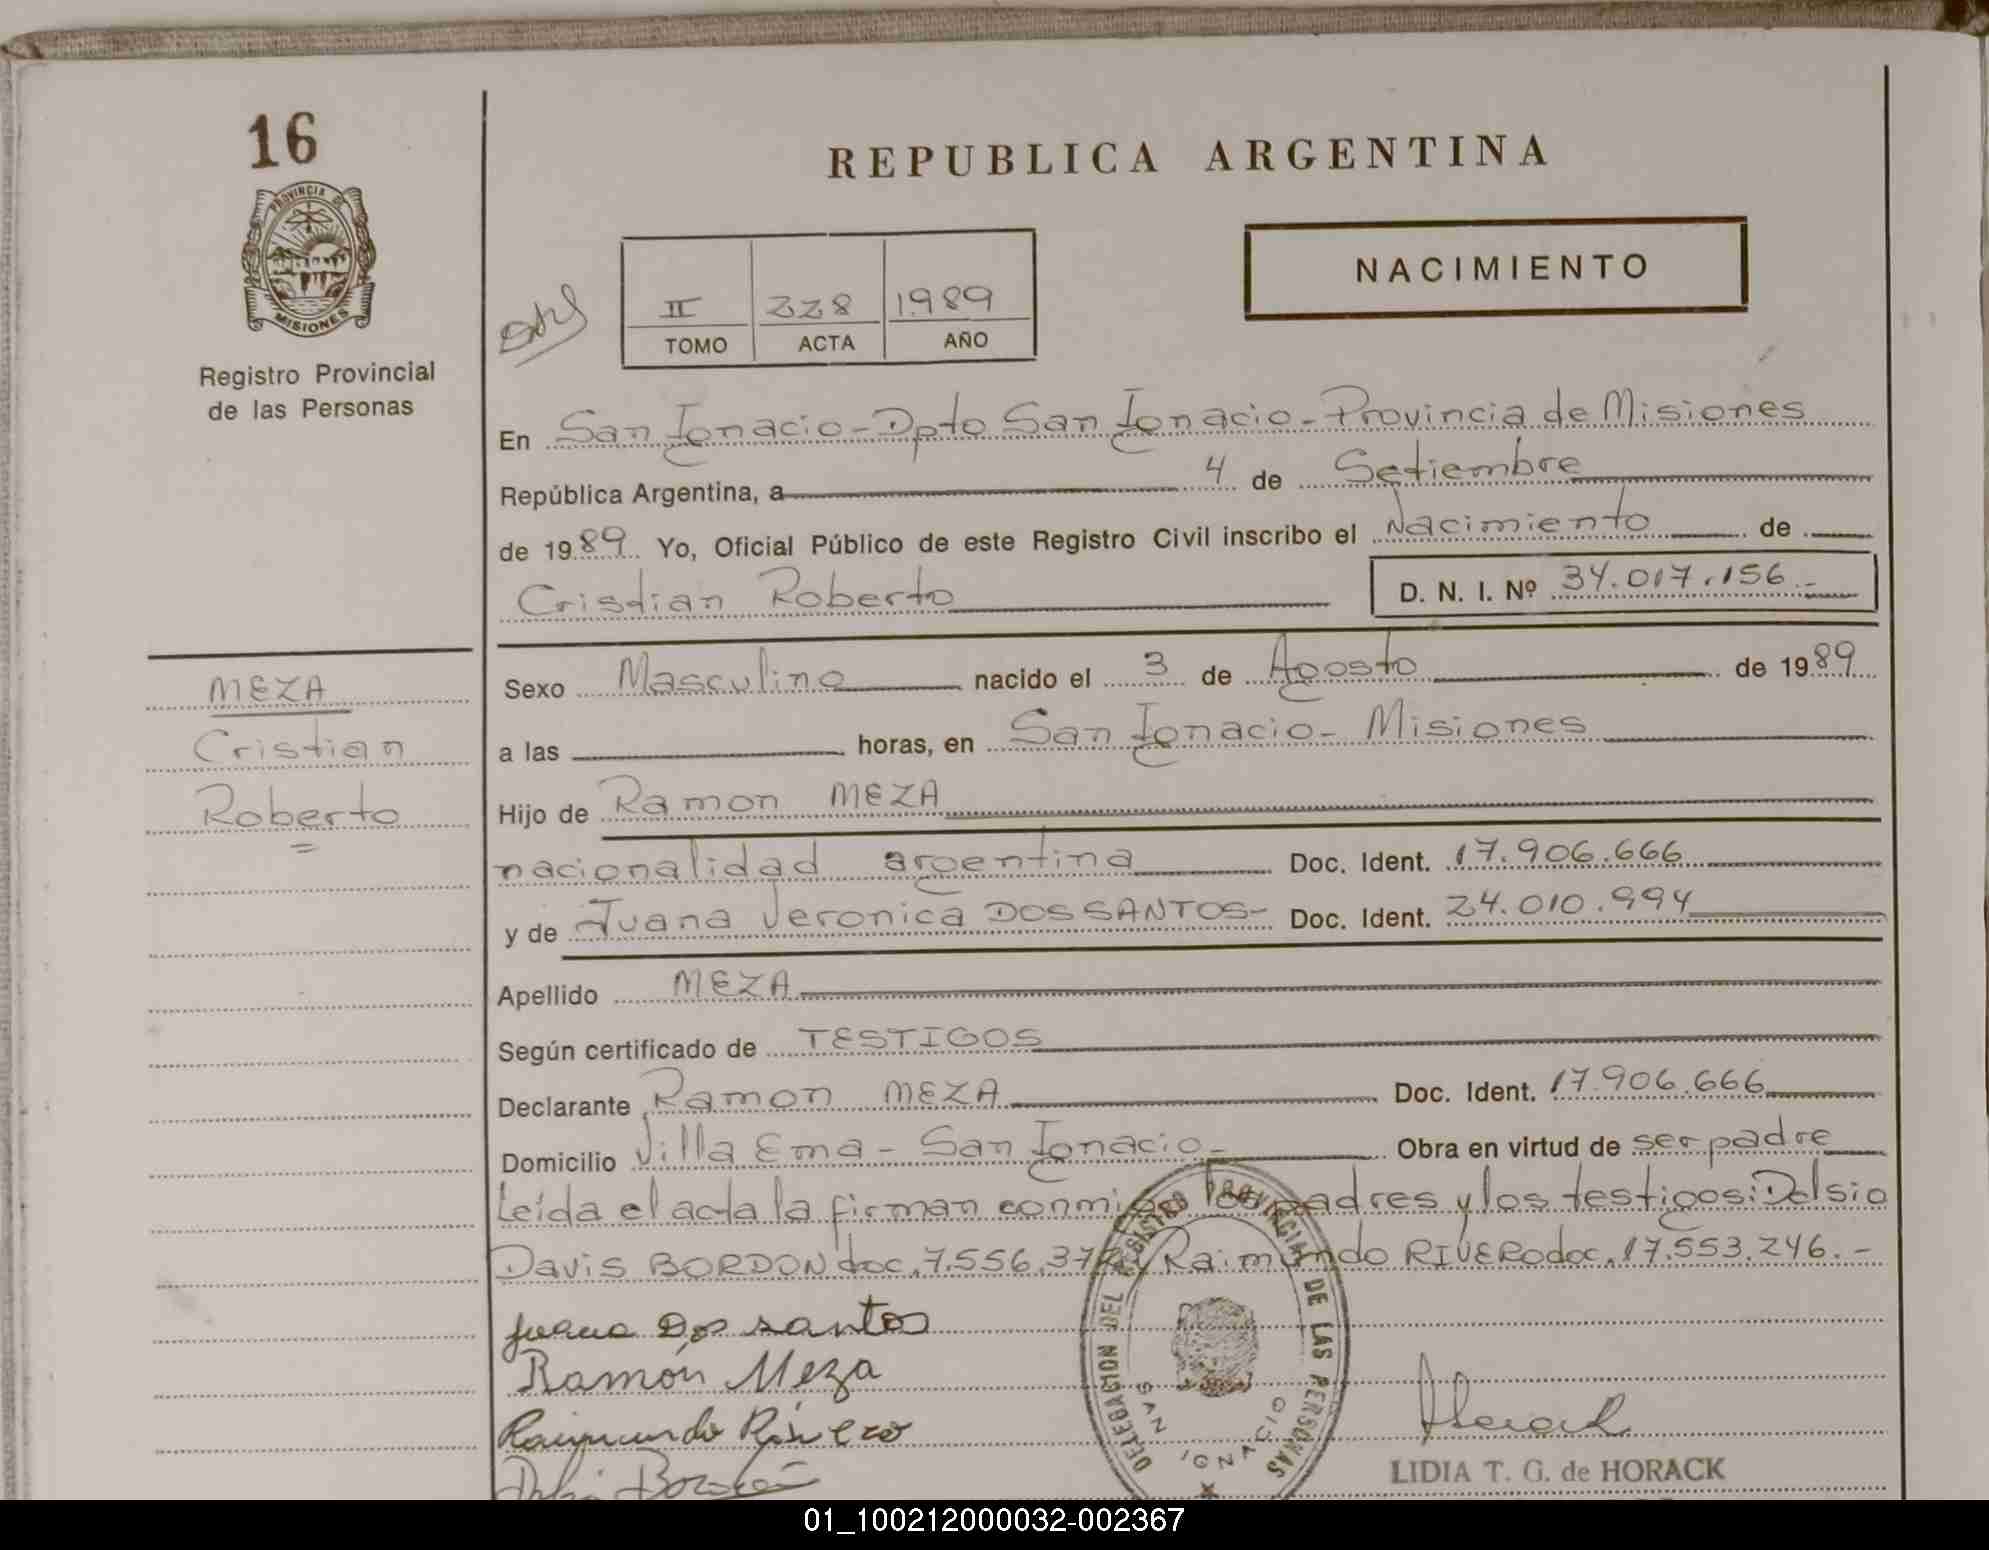 16
PROVINCIA DE
MISIONES
Registro Provincial
de las Personas
REPUBLICA ARGENTINA
NACIMIENTO
II 228 1989
TOMO ACTA AÑO
En San Ignacio - Dpto San Ignacio - Provincia de Misiones
República Argentina, a 4 de Setiembre
de 1989 Yo, Oficial Público de este Registro Civil inscribo el Nacimiento de
Cristian Roberto D. N. I. Nº 34.017.156.-
MEZA
Cristian
Roberto
Sexo Masculino nacido el 3 de Agosto de 1989
a las horas, en San Ignacio - Misiones
Hijo de Ramon MEZA
nacionalidad argentina Doc. Ident. 17.906.666
y de Juana Veronica DOS SANTOS- Doc. Ident. 24.010.994
Apellido MEZA
Según certificado de TESTIGOS
Declarante Ramon MEZA Doc. Ident. 17.906.666
Domicilio Villa Ema - San Ignacio - Obra en virtud de ser padre
Leída el acta la firman conmigo los padres y los testigos: Delsio
Davis BORDON doc. 7.556.37 Raimundo RIVERO doc. 17.553.246.-
Juana Dos santos
Ramón Meza
Raimundo Rivero
Bordon
DELEGACION DEL REGISTRO PROVINCIAL DE LAS PERSONAS
SAN IGNACIO
LIDIA T. G. de HORACK
01_100212000032-002367